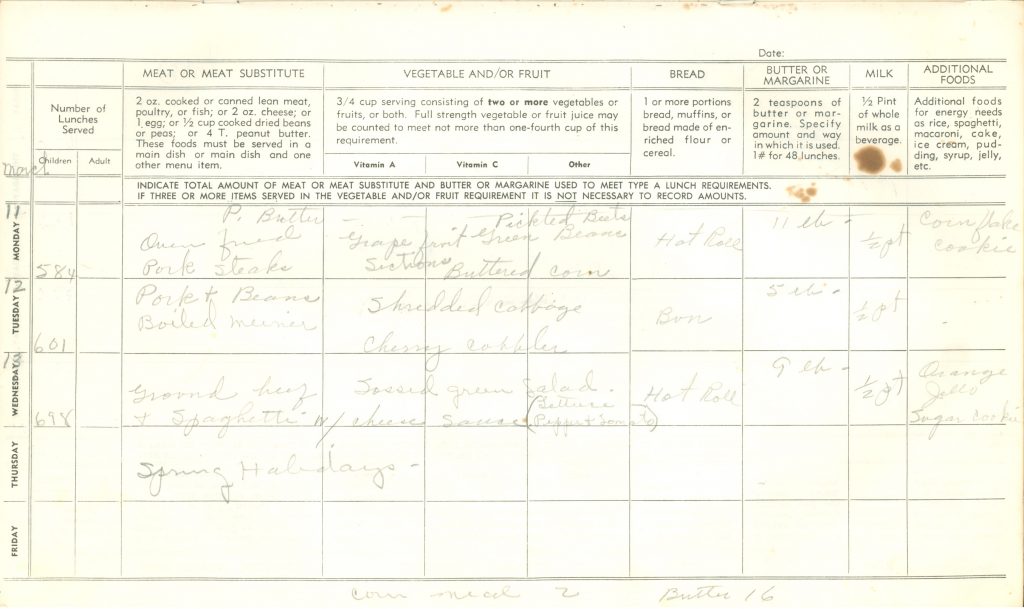 Date:
MEAT OR MEAT SUBSTITUTE
VEGETABLE AND/OR FRUIT
BREAD
BUTTER OR
MARGARINE
MILK
ADDITIONAL
FOODS
Number of
Lunches
Served
2 oz. cooked or canned lean meat,
poultry, or fish; or 2 oz. cheese; or
1 egg; or ½ cup cooked dried beans
or peas; or 4 T. peanut butter.
These foods must be served in a
main dish or main dish and one
other menu item.
3/4 cup serving consisting of two or more vegetables or
fruits, or both. Full strength vegetable or fruit juice may
be counted to meet not more than one-fourth cup of this
requirement.
1 or more portions
bread, muffins, or
bread made of en-
riched flour or
cereal.
2 teaspoons of
butter or mar-
garine. Specify
amount and way
in which it is used.
1# for 48 lunches.
½ Pint
of whole
milk as a
beverage.
Additional foods
for energy needs
as rice, spaghetti,
macaroni, cake,
ice cream, pud-
ding, syrup, jelly,
etc.
Children
Adult
Vitamin A
Vitamin C
Other
INDICATE TOTAL AMOUNT OF MEAT OR MEAT SUBSTITUTE AND BUTTER OR MARGARINE USED TO MEET TYPE A LUNCH REQUIREMENTS.
IF THREE OR MORE ITEMS SERVED IN THE VEGETABLE AND/OR FRUIT REQUIREMENT IT IS NOT NECESSARY TO RECORD AMOUNTS.
11
MONDAY
584
P. Butter
Oven fried
Pork Steaks
- -
Grape fruit
Sections
Pickled Beets
Green Beans
Buttered Corn
Hot Roll
11 lb -
½ pt
Corn flake
Cookie
12
TUESDAY
601
Pork + Beans
Boiled Weiner
Shredded Cabbage
Cherry Cobbler
Bun
5 lb -
½ pt
13
WEDNESDAY
698
Ground beef
+ Spaghetti w/ cheese sauce
Tossed green Salad -
(Lettuce
Pepper + Tomato)
Hot Roll
9 lb -
½ pt
Orange
Jello
Sugar Cookie
THURSDAY
Spring Holidays -
FRIDAY
Corn meal 2
Butter 16